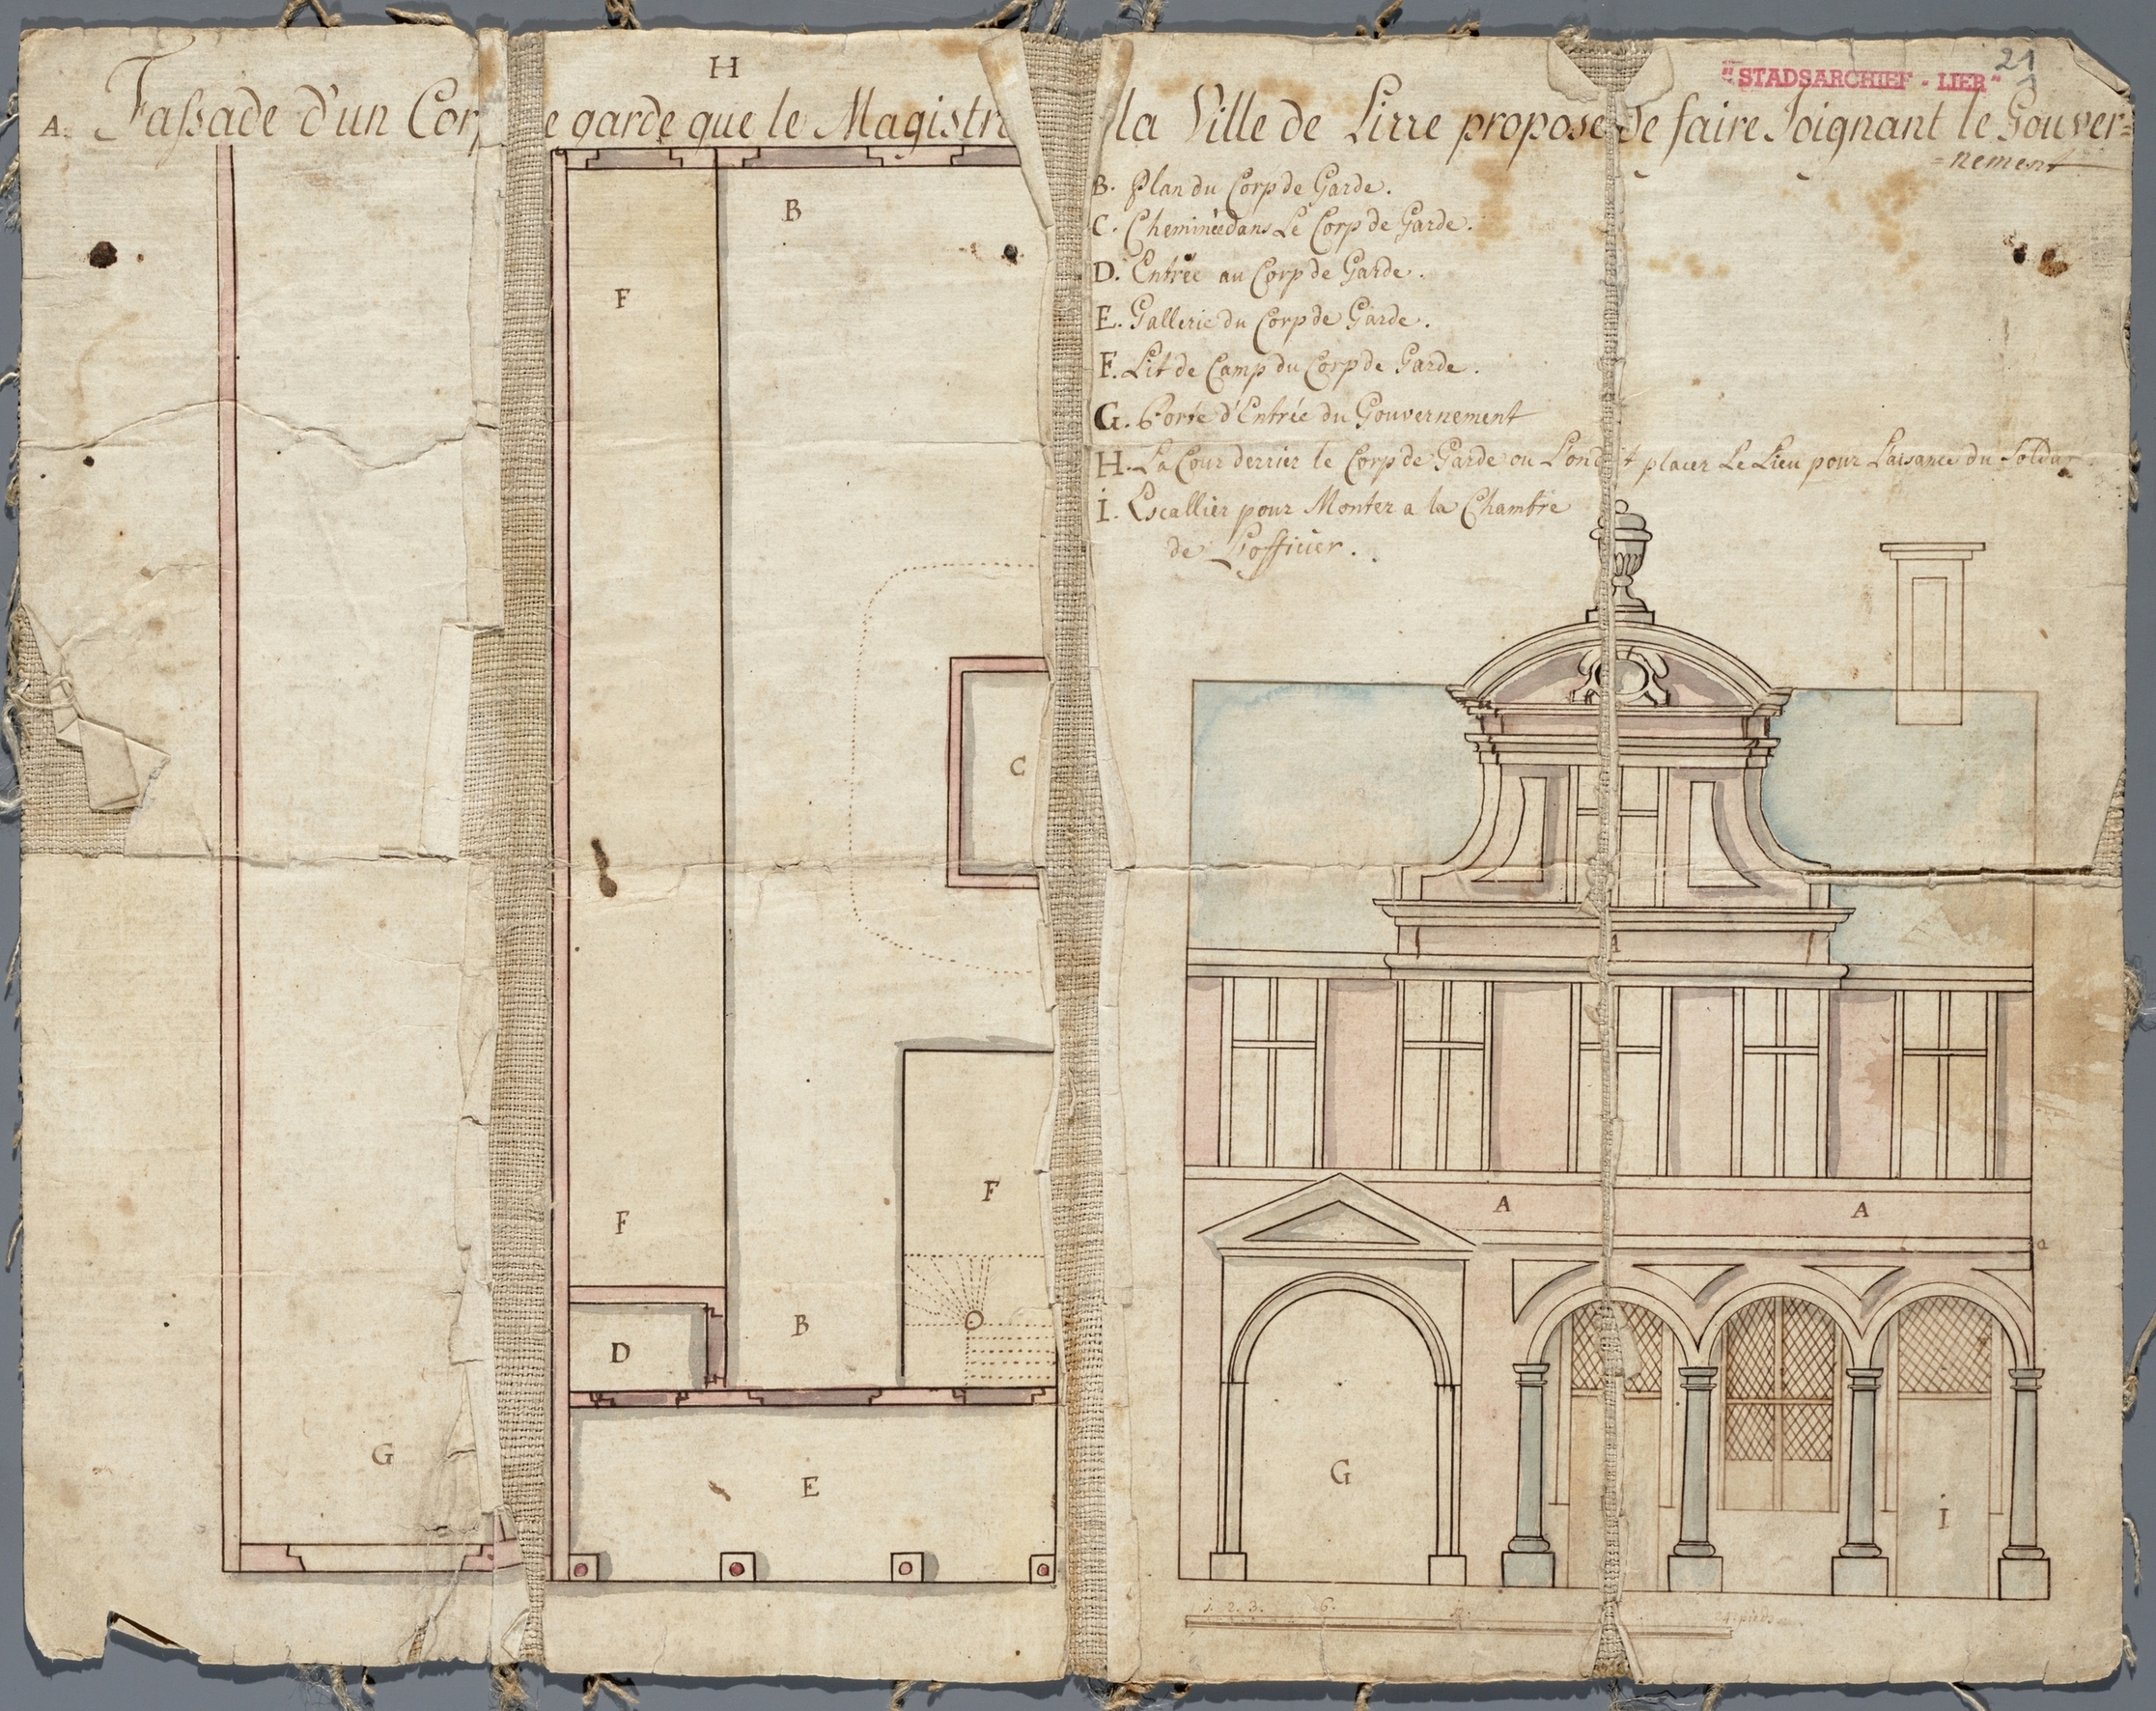 H
21
"STADSARCHIEF - LIER"
A. Faſsade d'un Cor e garde que le Magistr la Ville de Lirre propose de faire Joignant le Gouver=
=nement
B. Plan du Corp de Garde.
C. Cheminée dans Le Corp de Garde.
D. Entrée au Corp de Garde.
E. Gallerie du Corp de Garde.
F. Lit de Camp du Corp de Garde.
G. Porte d'Entrée du Gouvernement
H. La Cour derrier le Corp de Garde ou L'on t placer Le Lieu pour L'aisance du Soldat
I. Escallier pour Monter a la Chambre
de L'officier.
B
F
C
A
F
A
A
F
B
D
G
E
G
I
1. 2. 3. 6. 12. 24 pieds